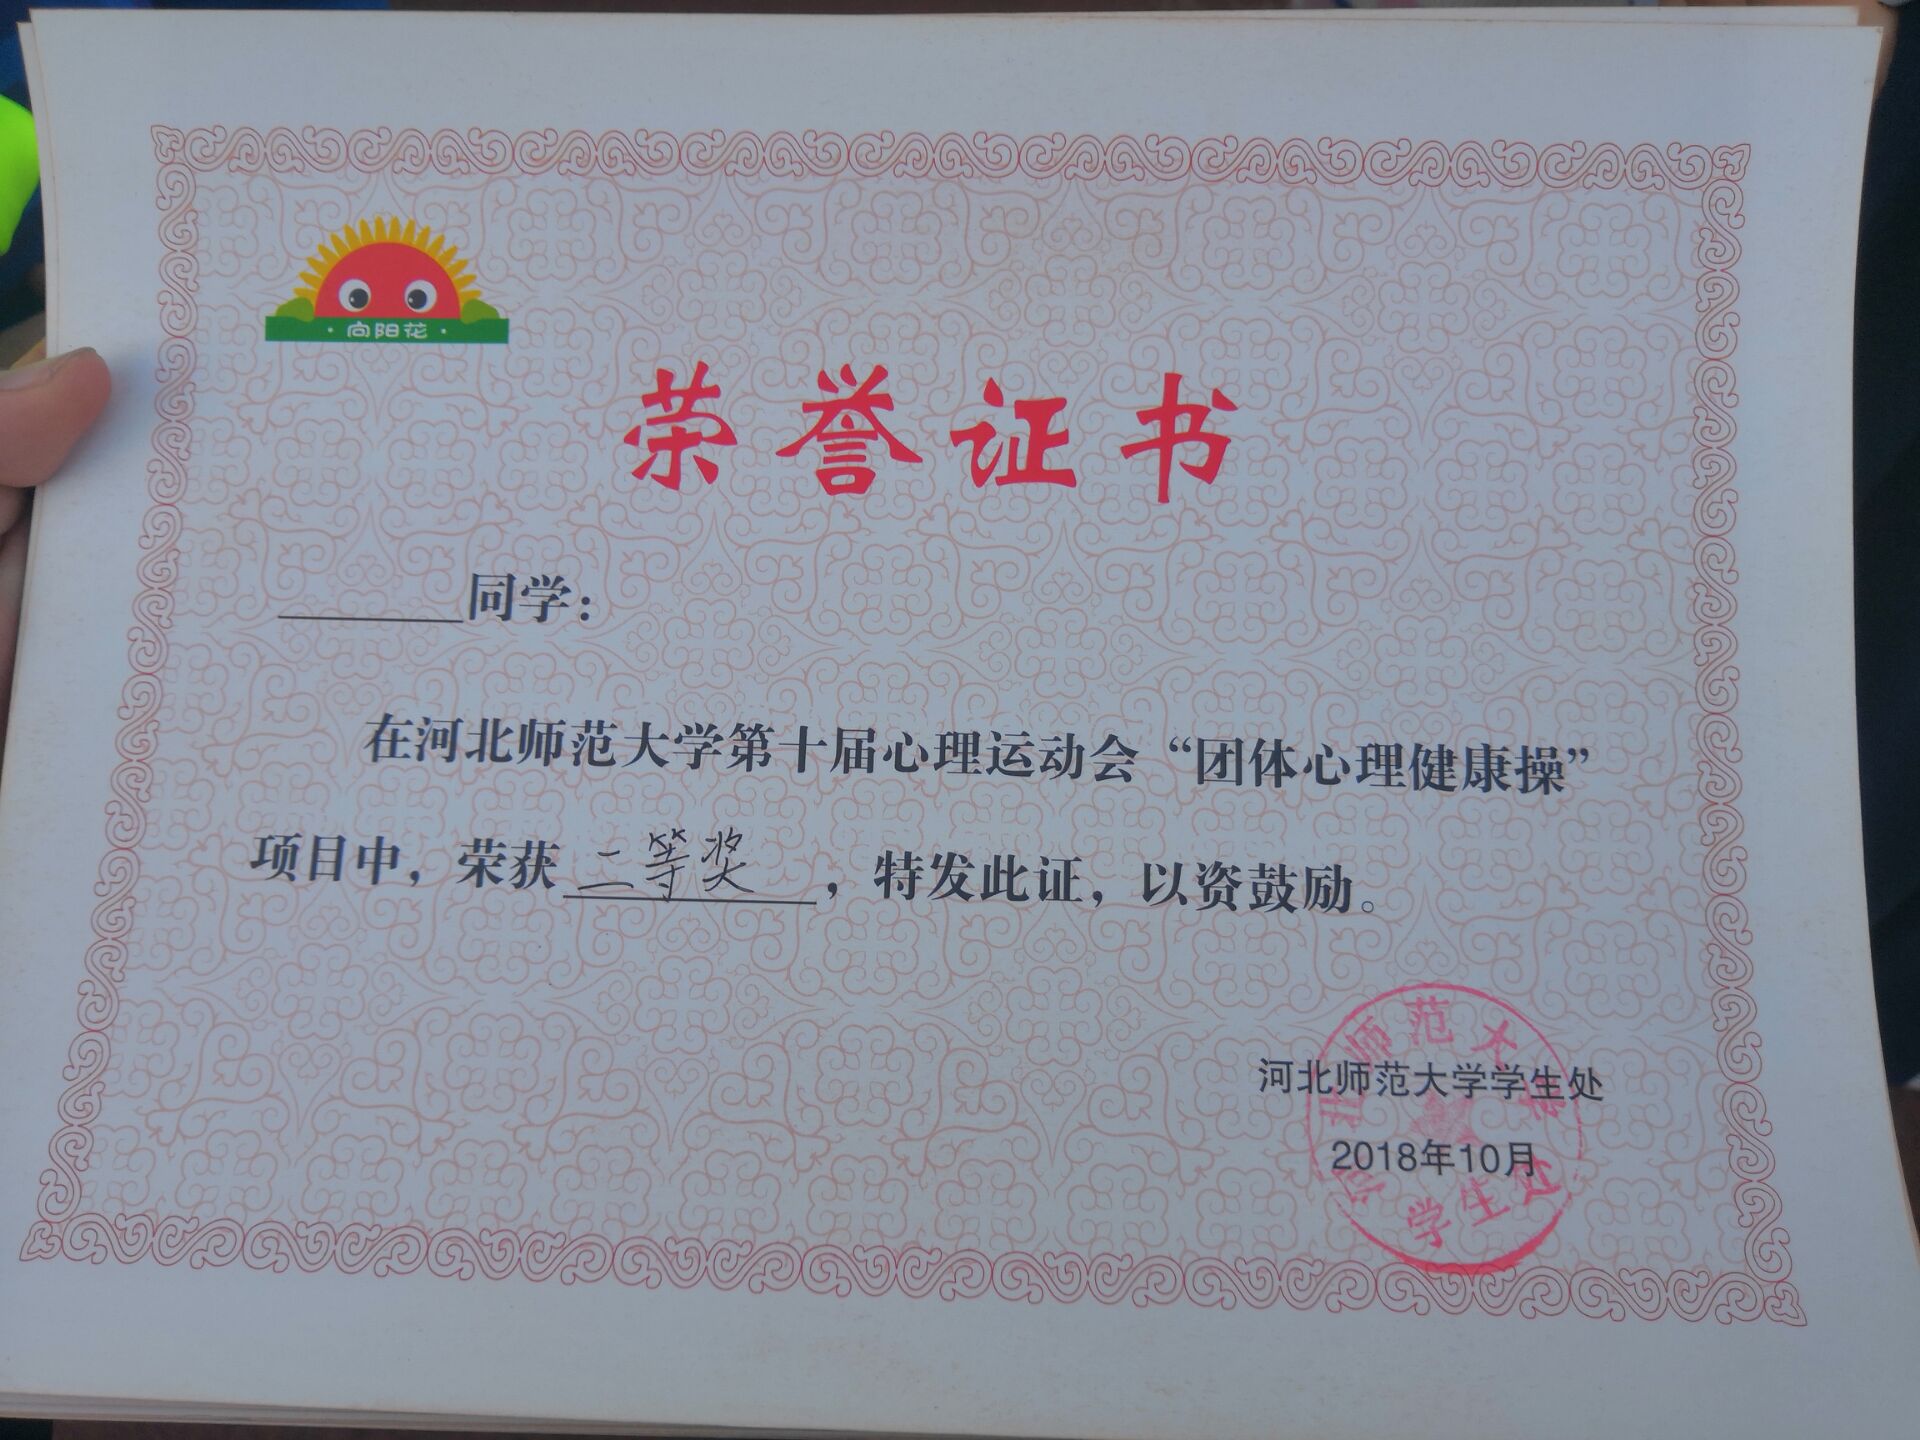 ·向阳花·
荣誉证书
同学：
在河北师范大学第十届心理运动会“团体心理健康操”
项目中，荣获二等奖，特发此证，以资鼓励。
河北师范大学学生处
2018年10月
河北师范大学
学生处